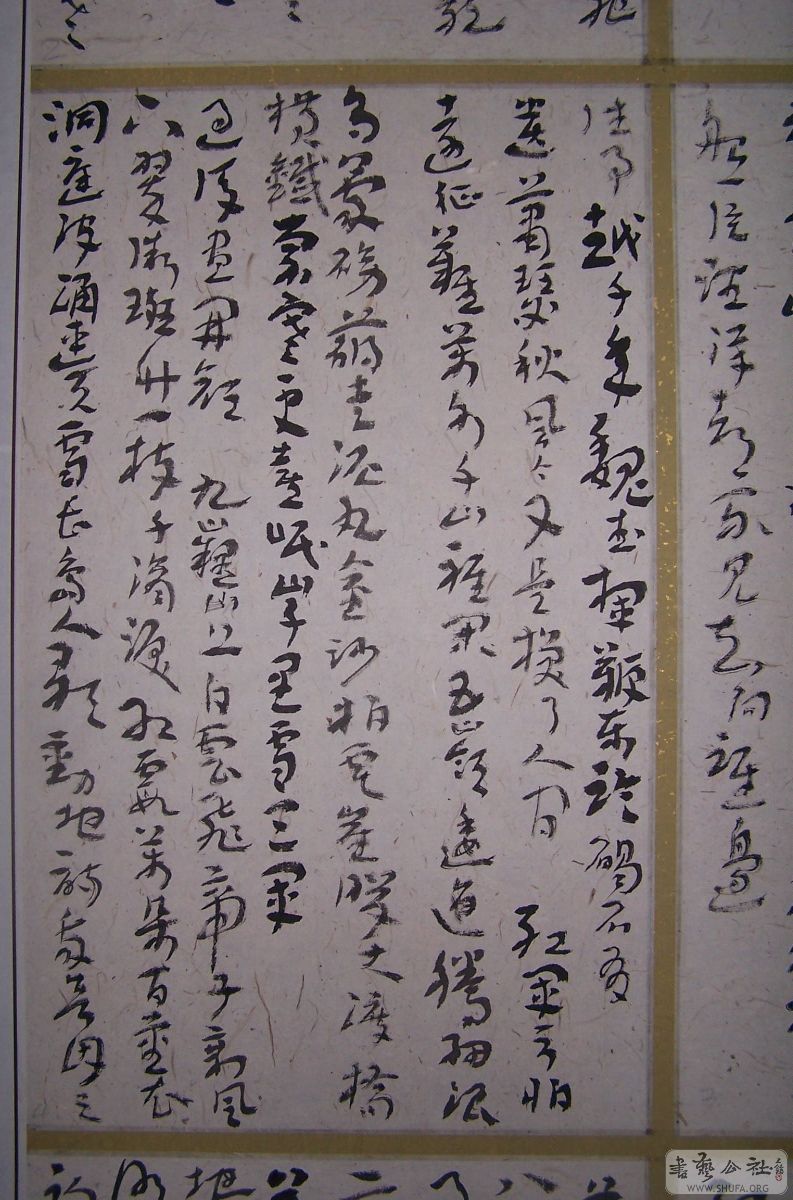 船一片汪洋都不見知向誰邊
往事越千年魏武揮鞭東臨碣石有
遺蕭瑟秋風今又是換了人間 紅軍不怕
遠征難萬水千山閑五嶺逶迤騰細浪
烏蒙磅礴走泥丸金沙拍雲崖暖大渡橋
橫鐵索寒更喜岷山千里雪三軍
過後盡開顏 九嶷山上白雲飛帝子乘風
下翠微斑竹一枝千滴淚紅霞萬朵百重衣
洞庭波涌連天雪長島人歌動地詩我欲因之
書藝公社
WWW.SHUFA.ORG